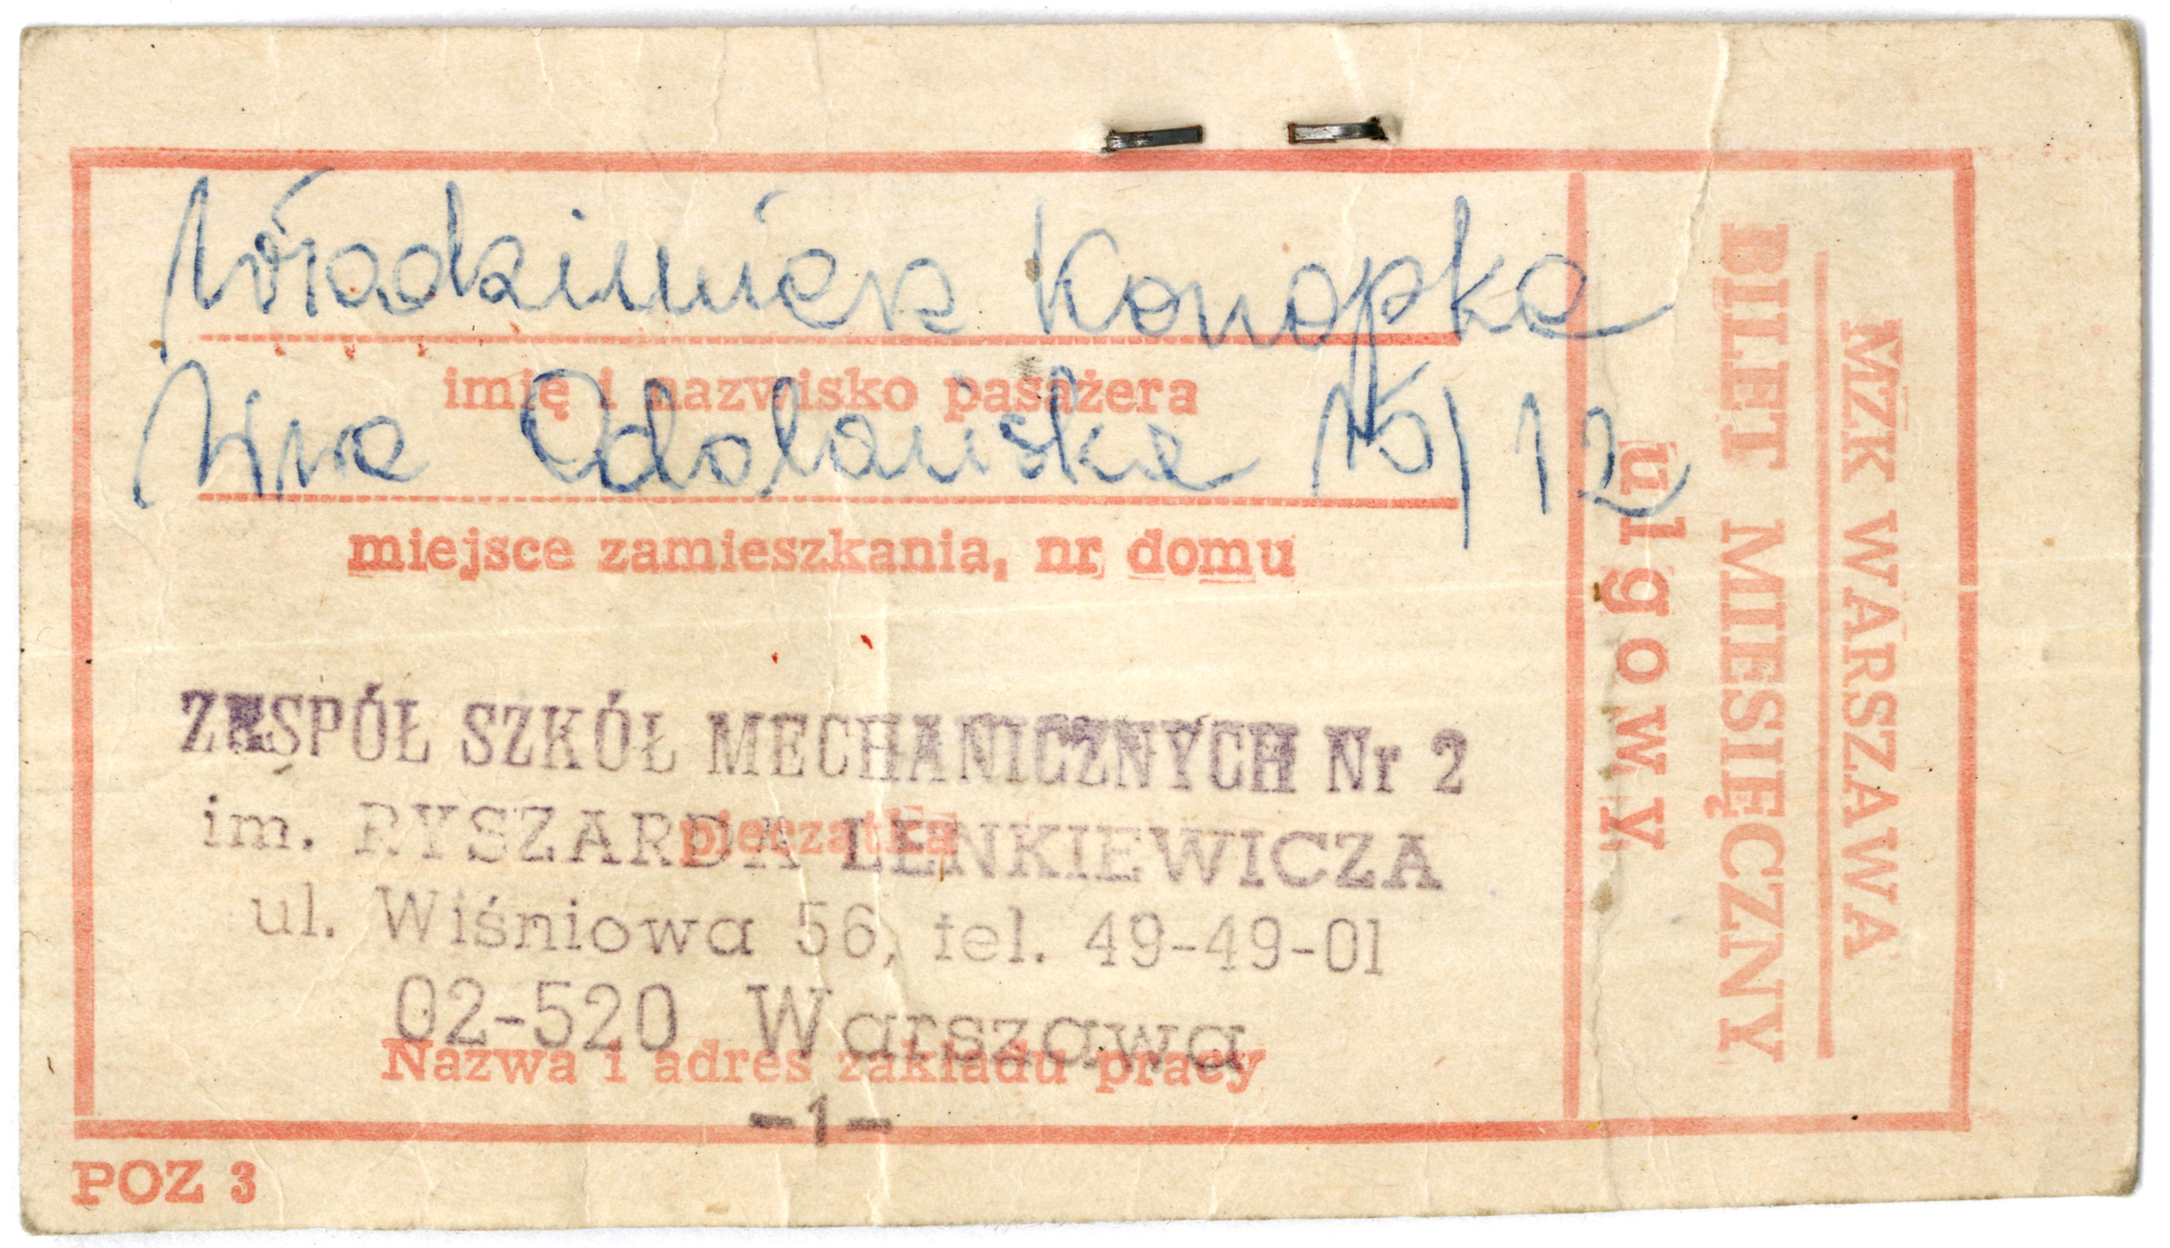 Włodzimierz Konopka
imię i nazwisko pasażera
Odolańska 15/12
miejsce zamieszkania, nr domu
ZESPÓŁ SZKÓŁ MECHANICZNYCH Nr 2
pieczątka
im. RYSZARDA LENKIEWICZA
ul. Wiśniowa 56, tel. 49-49-01
02-520 Warszawa
Nazwa i adres zakładu pracy
-1-
POZ 3
MZK WARSZAWA
BILET MIESIĘCZNY
ulgowy